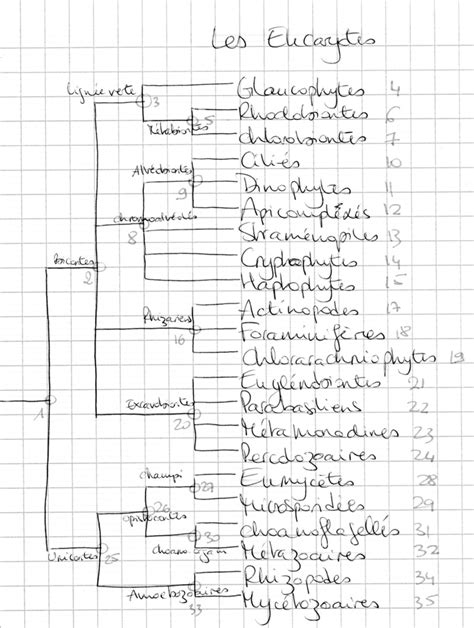 Les Eucaryotes
Glaucophytes 4
Lignée verte 3
Rhodobiontes 6
Métabiontes 5
Chlorobiontes 7
Ciliés 10
Alvéobiontes 9
Dinophytes 11
Apicomplexés 12
chromoalvéolés 8
Straménopiles 13
Cryptophytes 14
Bicontes 2
Haptophytes 15
Actinopodes 17
Rhizaires 16
Foraminifères 18
Chlorarachniophytes 19
Euglénobiontes 21
Excavobiontes 20
Parabasaliens 22
1
Métamonadines 23
Percolozoaires 24
champi 27
Eumycètes 28
Microsporidies 29
Opistocontes 26
choanoflagellés 31
choano 30
Métazoaires 32
Unicontes 25
Rhizopodes 34
Amoebozoaires 33
Mycétozoaires 35